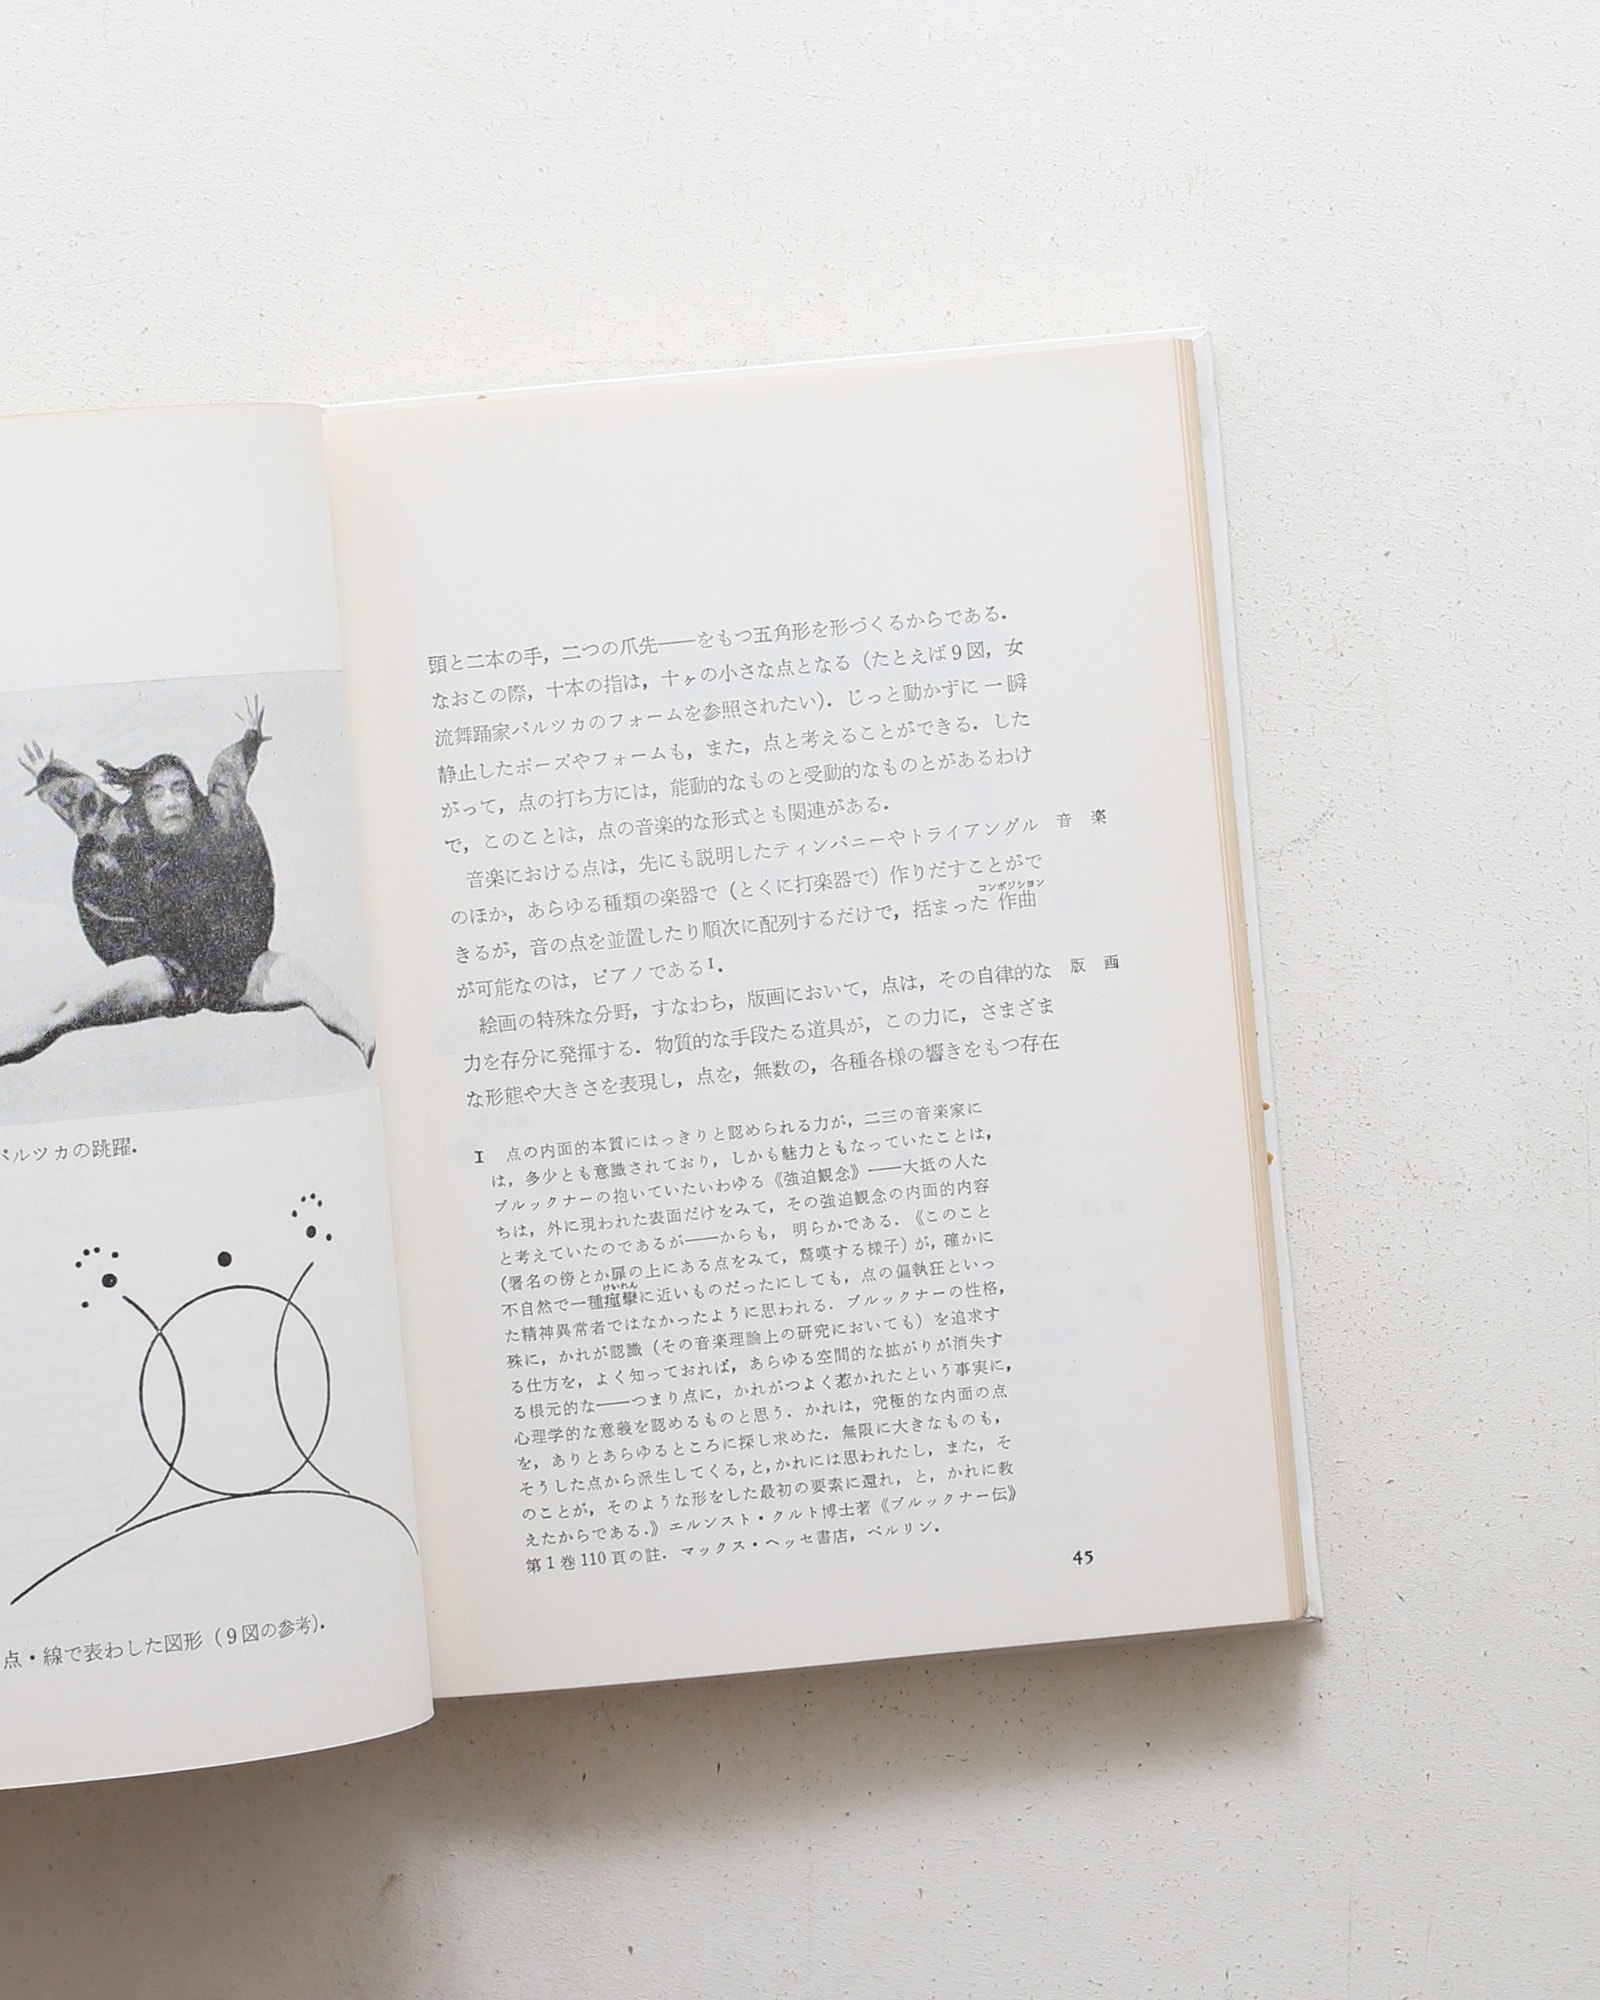 パルツカの跳躍.
点・線で表わした図形（9図の参考).
頭と二本の手，二つの爪先――をもつ五角形を形づくるからである.
なおこの際，十本の指は，十ヶの小さな点となる（たとえば9図，女
流舞踊家パルツカのフォームを参照されたい). じっと動かずに一瞬
静止したポーズやフォームも，また，点と考えることができる. した
がって，点の打ち方には，能動的なものと受動的なものとがあるわけ
で，このことは，点の音楽的な形式とも関連がある.
音楽における点は，先にも説明したティンパニーやトライアングル 音楽
のほか，あらゆる種類の楽器で（とくに打楽器で）作りだすことがで
きるが，音の点を並置したり順次に配列するだけで，括まった作曲
コンポジション
が可能なのは，ピアノである I.
絵画の特殊な分野，すなわち，版画において，点は，その自律的な 版画
力を存分に発揮する. 物質的な手段たる道具が，この力に，さまざま
な形態や大きさを表現し，点を，無数の，各種各様の響きをもつ存在
I 点の内面的本質にはっきりと認められる力が，二三の音楽家に
は，多少とも意識されており，しかも魅力ともなっていたことは，
ブルックナーの抱いていたいわゆる《強迫観念》――大抵の人た
ちは，外に現われた表面だけをみて，その強迫観念の内面的内容
と考えていたのであるが――からも，明らかである.《このこと
(署名の傍とか扉の上にある点をみて，驚嘆する様子）が，確かに
不自然で一種痙攣に近いものだったにしても，点の偏執狂といっ
けいれん
た精神異常者ではなかったように思われる. ブルックナーの性格，
殊に，かれが認識（その音楽理論上の研究においても）を追求す
る仕方を，よく知っておれば，あらゆる空間的な拡がりが消失す
る根元的な――つまり点に，かれがつよく惹かれたという事実に，
心理学的な意義を認めるものと思う. かれは，究極的な内面の点
を，ありとあらゆるところに探し求めた. 無限に大きなものも，
そうした点から派生してくる，と，かれには思われたし，また，そ
のことが，そのような形をした最初の要素に還れ，と，かれに教
えたからである.》エルンスト・クルト博士著《ブルックナー伝》
第1巻110頁の註. マックス・ヘッセ書店，ベルリン.
45